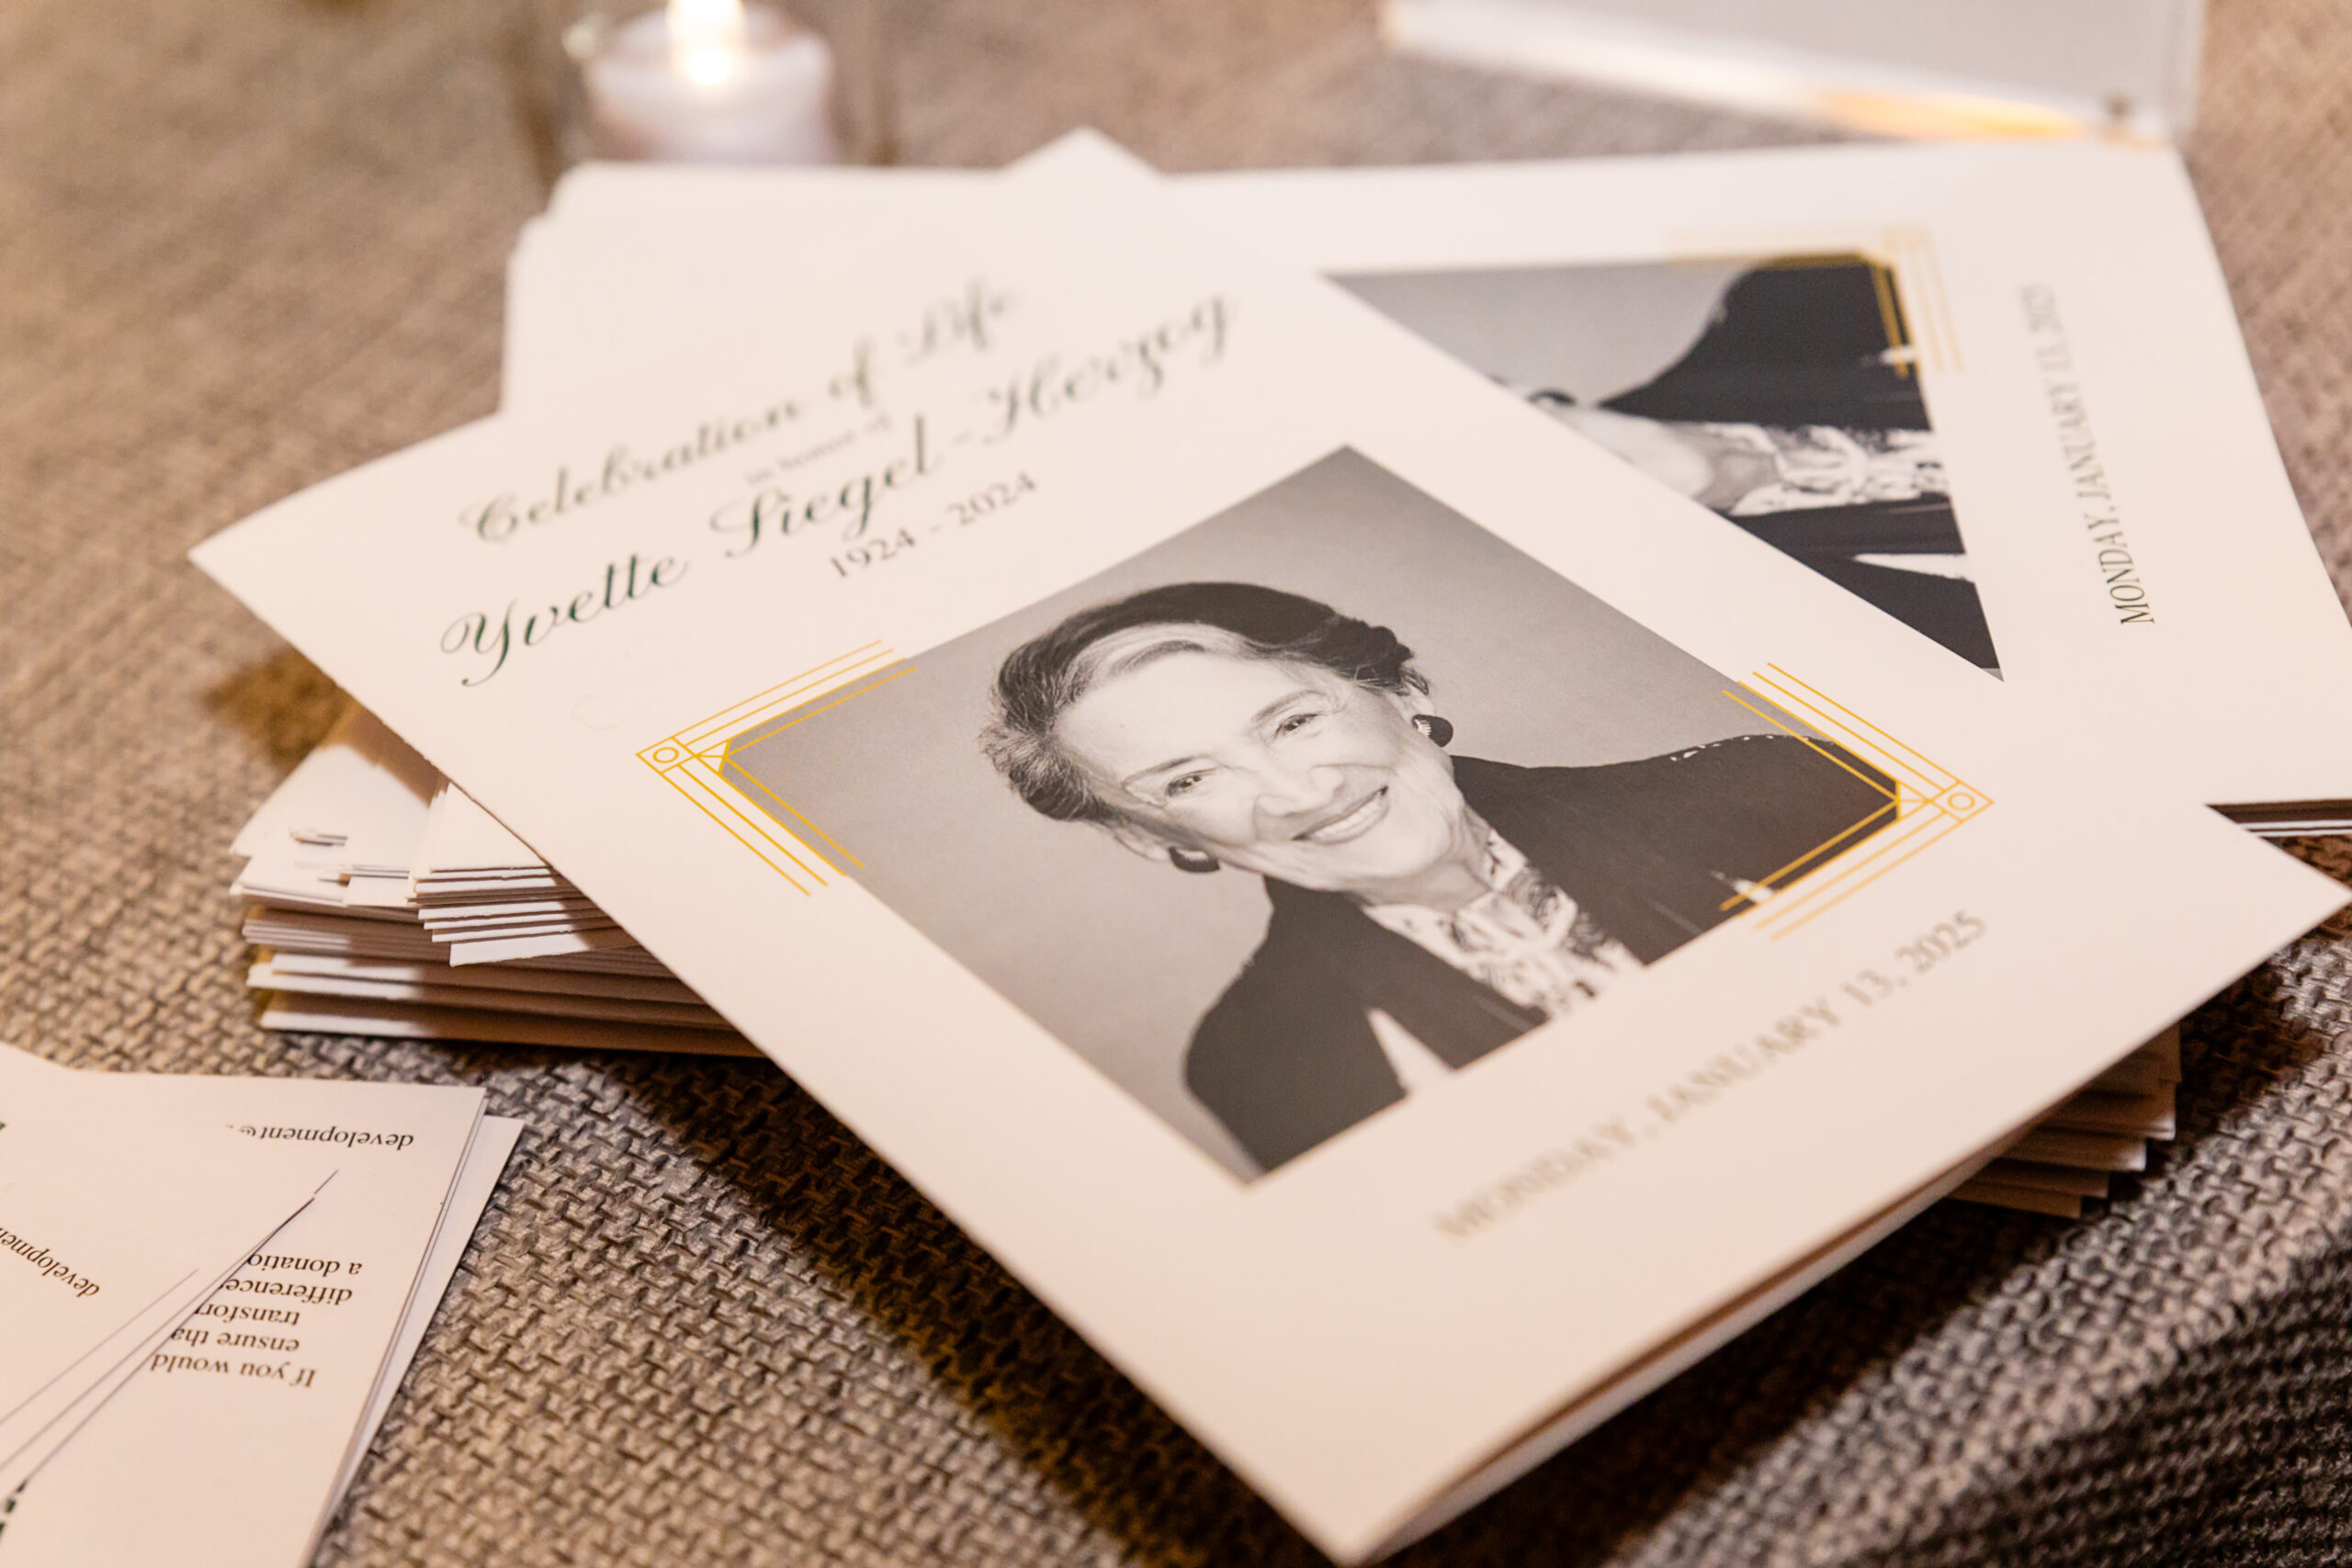 Celebration of Life
in honor of
Yvette Siegel-Herzog
1924 - 2024
MONDAY, JANUARY 13, 2025
MONDAY, JANUARY 13, 2025
development@
If you would
ensure tha
transfor
difference
a donatio
developmen